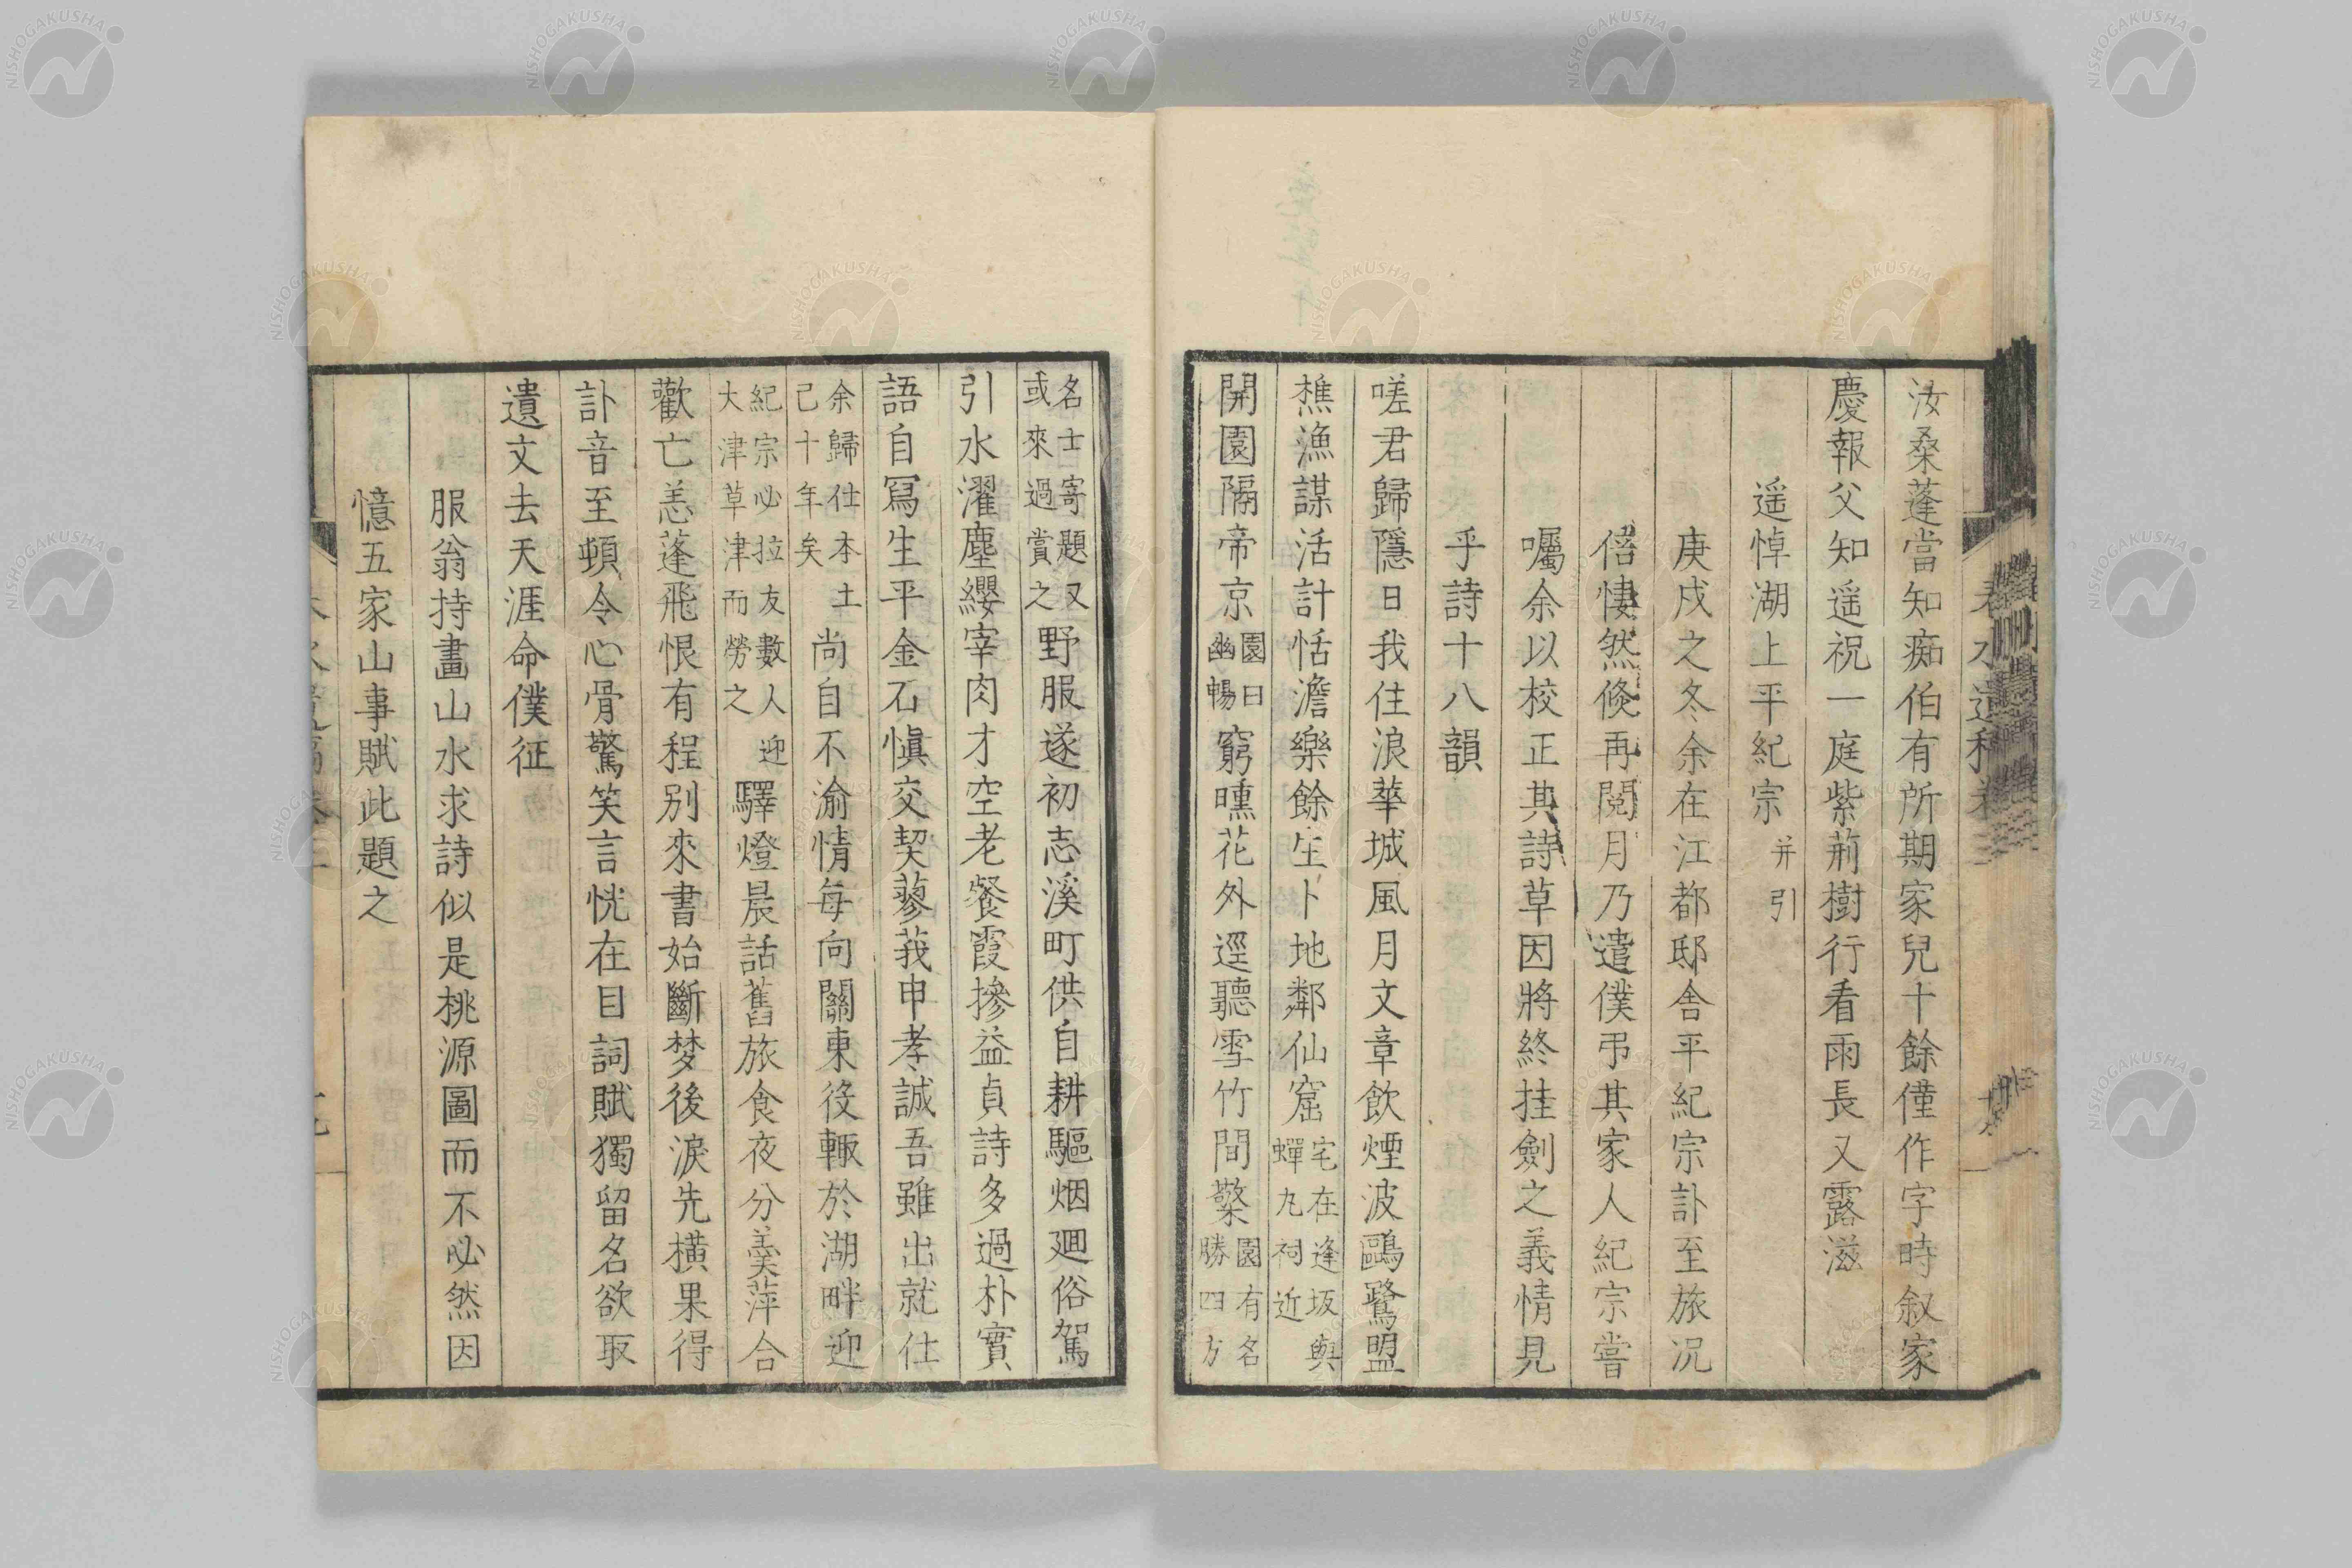 汝桑蓬當知痴伯有所期家兒十餘僅作字時叙家
慶報父知遥祝一庭紫荊樹行看雨長又露滋
遥悼湖上平紀宗 并引
庚戌之冬余在江都邸舍平紀宗訃至旅况
倍悽然倏再閲月乃遣僕弔其家人紀宗嘗
囑余以校正其詩草因將終挂劍之義情見
乎詩十八韻
嗟君歸隱日我住浪華城風月文章飲煙波鷗鷺盟
樵漁謀活計恬澹樂餘生卜地鄰仙窟 宅在逢坂與蟬丸祠近
開園隔帝京 園曰幽暢 窮曛花外逕聽雪竹間檠 園有名勝四方
名士寄題又或來過賞之 野服遂初志溪町供自耕驅烟廻俗駕
引水濯塵纓宰肉才空老餐霞摻益貞詩多過朴實
語自冩生平金石愼交契蓼莪申孝誠吾雖出就仕
余歸仕本土己十年矣 尚自不渝情每向關東役輙於湖畔迎
紀宗必拉友數人迎大津草津而勞之 驛燈晨話舊旅食夜分羮萍合
歡亡恙蓬飛恨有程別來書始斷梦後淚先橫果得
訃音至頓令心骨驚笑言恍在目詞賦獨留名欲取
遺文去天涯命僕征
服翁持畫山水求詩似是桃源圖而不必然因
憶五家山事賦此題之
NISHOGAKUSHA